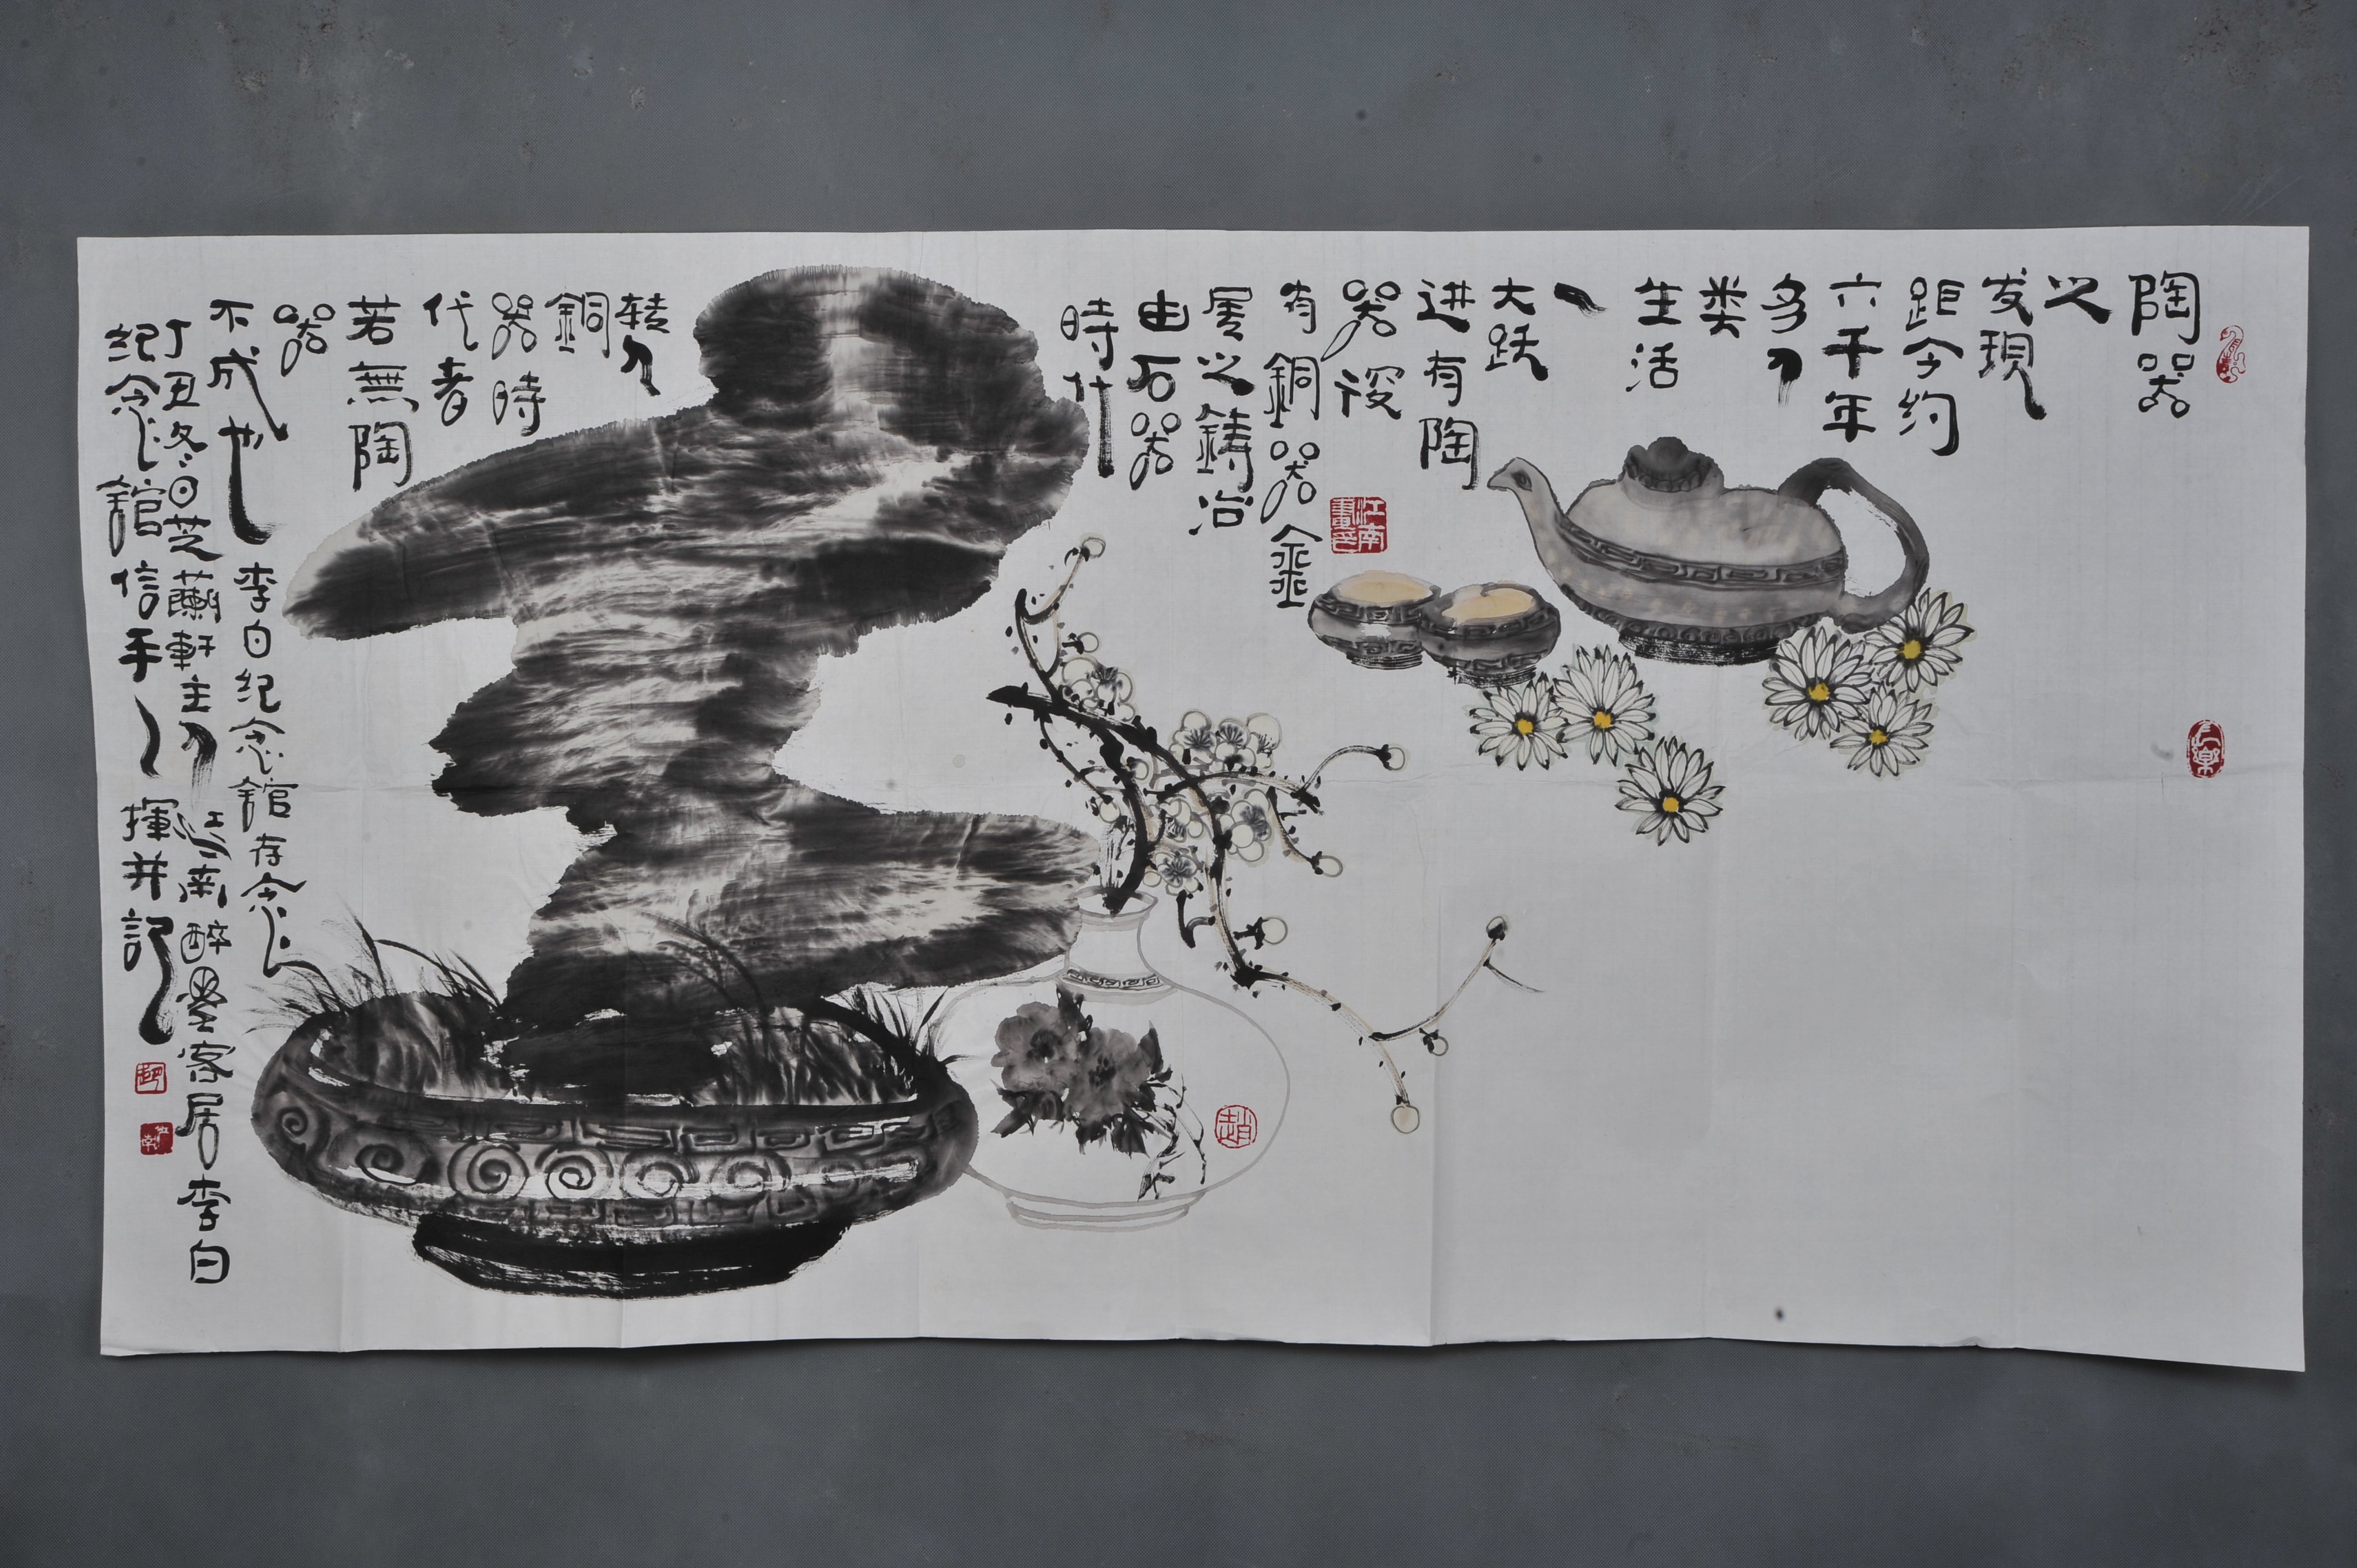 陶器
之
发現
距今约
六千年
多人
类
生活
一
大跃
进有陶
器後
有銅器金
属之鑄冶
由石器
時代
转入
銅
器時
代者
若無陶
器
不成也
李白纪念館存念
丁丑冬日芝蘭軒主人江南醉墨客居李白
纪念館信手一揮并記
江南
畫印
趙